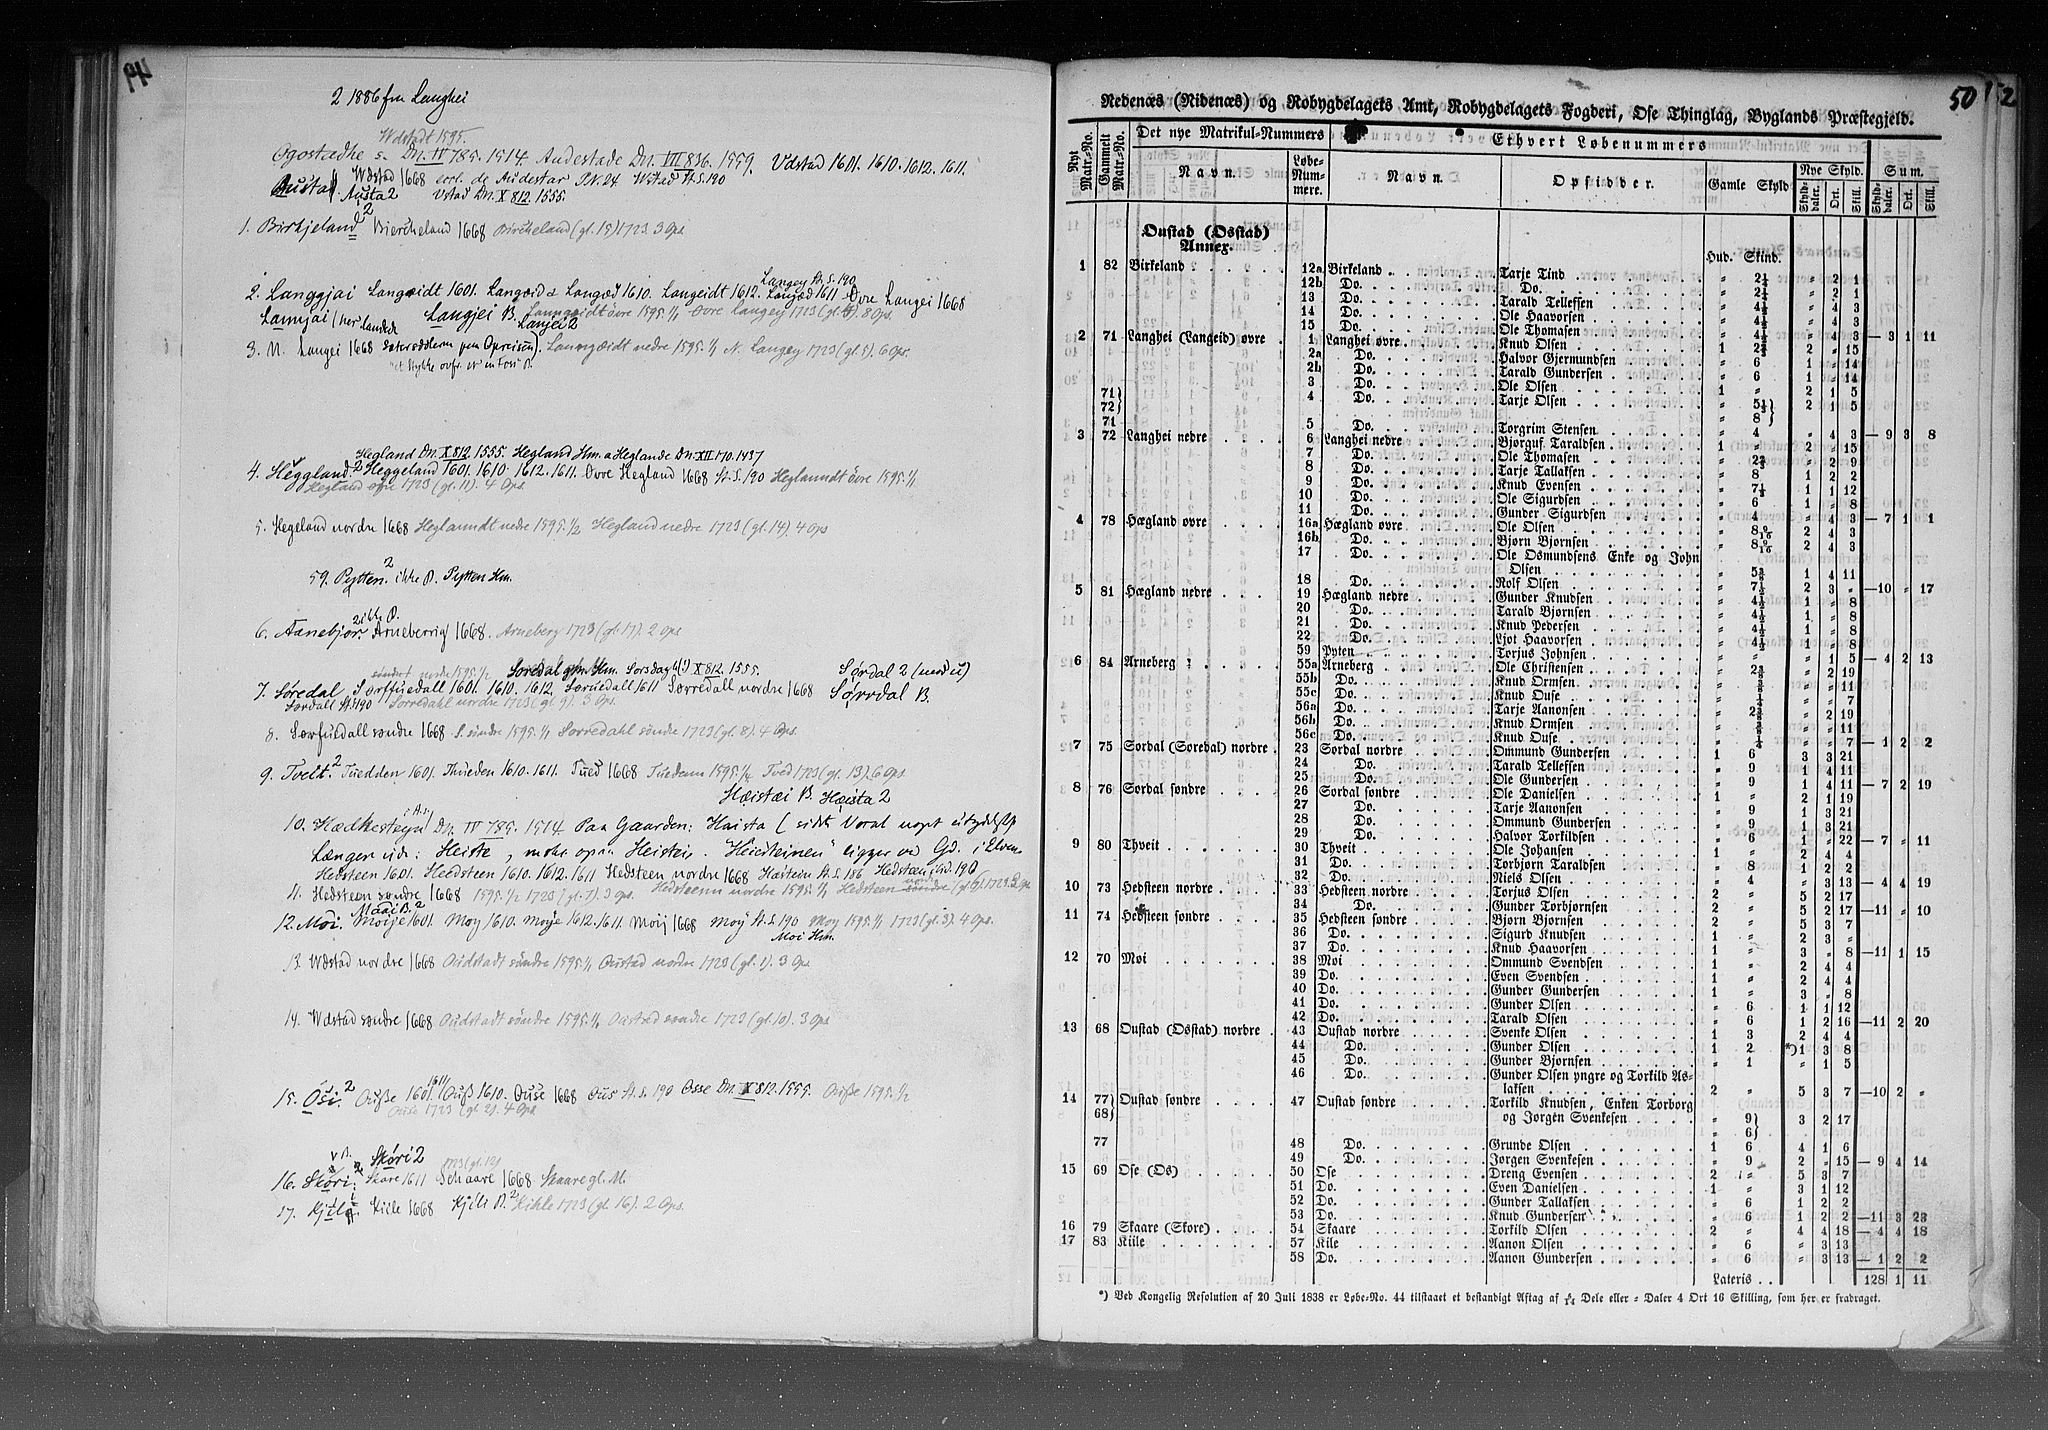 2 1886 fra Langhei
Wdstadt 1595.
Ogostædhe s. Dn. IV 785. 1514. Audestade Dn. VII 836. 1559. Vdstad 1601. 1610. 1612. 1611.
Austa Wæstad 1668 Wstad St. S. 190
Austa 2 Vstad Dn. X 812. 1555.
1. Birkjeland 2 Bierckeland 1668 Birckeland (gl. 15) 1723. 3 Ops.
Langey St. S. 190
2. Langgjai Langeidt 1601. Langeid 1610. Langeidt 1612. Langæd 1611 Øvre Langei 1668
Lannjai Langjei B. Lanngeidt övre 1595. 1/1 Øvre Langey 1723 8 Ops.
Lanjei 2
3. N. Langei 1668 Lanngæidt nedre 1595. 1/1 N. Langey 1723 (gl. 5) 6 Ops.
Hegland Dn. X 812. 1555. Hegland Hm. a Heglande Dn. XII 170. 1437
4. Heggland 2 Heggeland 1601. 1610. 1612. 1611. Øvre Hegland 1668 St. S. 190 Heglanndt övre 1595. 1/1
Hegland øfre 1723 (gl. 11). 4 Ops.
5. Hegeland nordre 1668 Heglanndt nedre 1595. 1/2 Hegland nedre 1723 (gl. 14). 4 Ops
59. Pytten. 2 ikke B. Pytten Hm.
2 ikke B.
6. Aanebjor. Arneberrig 1668. Arneberg 1723 (gl. 17). 2 Ops
søndre nordre 1595. 1/2 Soredal Hm. Sorsdag (!) X 812. 1555. Sørdal 2 (med u)
7. Søredal. Sorffuedall 1601. 1610. 1612. Soruedall 1611 Sorredall nordre 1668 Sørrdal B.
Sordall St. S. 190 Sorredahl nordre 1723 (gl. 9). 3 Ops.
8. Sorfuedall søndre 1668 S. söndre 1595. 1/1 Sorredahl søndre 1723 (gl. 8). 4 Ops.
9. Tveit. 2 Tuedden 1601. Thueden 1610. 1611. Tued 1668 Tuedenn 1595. 1/2 Tved 1723 (gl. 13). 6 Ops
Hæistæi B. Heista 2
10. Hædkesteyn Dn. IV 785. 1514. Paa Gaarden: Haista (sidste Vocal noget utydelig
Længer ude: Heiste, ogsaa Heistei. "Heisteinen" ligger ved Gd. i Elven.
Hedsteen 1601. Heedsteen 1610. 1612. 1611 Hedsteen nordre 1668 Hæsteen St. S. 186 Hedsteen ibid. 190
11. Hedsteen søndre 1668 1595. 1/2 1723 (gl. 7). 3 Ops. Hedsteenn nordre 1595. 1/1 Hedsteen nordre
Moai B. 2
12. Moi. Moije 1601. Moy 1610. Moye 1612. 1611 Moij 1668 Moÿ St. S. 190 Moy 1595. 1/1 1723 (gl. 3). 4 Ops.
Moi Hm.
13. Wdstad nordre 1668 Oustad nordre 1723 (gl. 1). 3 Ops
14. Wdstad søndre 1668 Oudstadt söndre 1595. 1/1 Oustad søndre 1723 (gl. 10). 3 Ops
15. Osi. 2 Ouße 1601. 1611 Ouß 1610. Ouse 1668 Ous St. S. 190 Osse Dn. X 812. 1555. Ouße 1595. 1/2
Ouse 1723 (gl. 2). 4 Ops
Skori 2 1723 (gl. 12)
16. Skori. Skore 1611 Schaare 1668 Skaare gl. M.
17. Kjili Kiile 1668 Kjili B. 2 Kihle 1723 (gl. 16). 2 Ops.
50
Nedenæs (Nidenæs) og Robygdelagets Amt, Robygdelagets Fogderi, Ose Thinglag, Byglands Præstegjeld.
Nyt Matr.-No. Gammelt Matr.-No. Det nye Matrikul-Nummers Ethvert Løbenummers
Navn. Løbe-Nummere. Navn. Opsidder. Gamle Skyld Nye Skyld. Sum.
Skylddaler. Ort. Skill. Skylddaler. Ort. Skill.
Oustad (Osstad)
Annex. Hud. Skind.
1 82 Birkeland 12a Birkeland Tarje Tind " 2¼ " 2 1
12b Do. Do. " 2¼ " 2 1
13 Do. Tarald Tellefsen " 4½ " 4 3
14 Do. Ole Haavorsen " 4½ " 4 3
15 Do. Ole Thomasen " 4½ " 4 3 — 3 1 11
2 71 Langhei (Langeid) øvre 1 Langhei øvre Knud Olsen 1 2⅔ 2 " 15
2a Do. Halvor Gjermundsen " 6 1 " 14
2b Do. Tarald Gundersen " 6 1 " 14
3 Do. Ole Olsen 1 " 2 1 5
71} 72} 4 Do. Tarje Olsen " 5⅓} 8} 2 1 5
71 5 Do. Torgrim Stensen " 4 " 4 3 — 9 3 8
3 72 Langhei nedre 6 Langhei nedre Bjorguf Taraldsen 1 " 2 " 15
7 Do. Ole Thomasen " 2⅔ " 2 9
8 Do. Tarje Tallaksen " 8 1 2 2
9 Do. Knud Evensen " 7⅓ 1 1 12
10 Do. Ole Sigurdsen " 6 1 " 8
11 Do. Gunder Sigurdsen " 4 " 4 3 — 7 1 1
4 78 Hægland øvre 16a Hægland øvre Ole Olsen " 8 9/10 2 4 3
16b Do. Bjørn Bjørnsen " 8 9/10 2 4 3
17 Do. Ole Osmundsens Enke og John
Olsen " 5⅜ 1 4 11
18 Do. Rolf Olsen " 7½ 2 3 " —10 " 17
5 81 Hægland nedre 19 Hægland nedre Gunder Knudsen " 4½ 1 " 8
20 Do. Tarald Bjørnsen " 4½ 1 " 8
21 Do. Knud Pedersen " 4½ 1 " 8
22 Do. Ljot Haavorsen " 4½ 1 " 8
59 Pyten Torjus Johnsen " " " 1 5 — 4 2 13
6 84 Arneberg 55a Arneberg Ole Christensen " 2⅜ " 2 19
55b Do. Knud Ormsen " " " 11
55c Do. Knud Ouse " ¼ " " 7
56a Do. Tarje Aanonsen " 2⅜ " 2 19
56b Do. Knud Ormsen " " " 11
56c Do. Knud Ouse " ¼ " " 7 — 1 2 2
7 75 Sordal (Soredal) nordre 23 Sordal nordre Ommund Gundersen 1 6 3 3 21
24 Do. Tarald Tellefsen " 9 1 4 11
25 Do. Ole Gundersen " 9 1 4 11 — 7 2 19
8 76 Sordal søndre 26 Sordal søndre Ole Danielsen 1 " 2 1 19
27 Do. Tarje Aanonsen " 9 1 3 21
28 Do. Ommund Gundersen " 9 1 3 21
29 Do. Halvor Torkildsen " 6 1 " 22 — 7 " 11
9 80 Thveit 30 Thveit Ole Johansen 1 " 2 4 4
31 Do. Torbjørn Taraldsen " 8 1 2 2
32 Do. Niels Olsen " 4 " 3 13 — 4 4 19
10 73 Hedsteen nordre 33 Hedsteen nordre Torjus Olsen 2 " 5 2 17
34 Do. Gunder Torbjørnsen 2 " 5 2 17 —11 " 10
11 74 Hedsteen søndre 35 Hedsteen søndre Bjørn Bjørnsen 2 " 5 3 7
36 Do. Sigurd Knudsen 1 " 2 3 "
37 Do. Knud Haavorsen 1 " 3 " 8 —11 1 15
12 70 Moi 38 Moi Ommund Svendsen 1 " 2 4 4
39 Do. Even Svendsen 1 " 2 4 4
40 Do. Gunder Gundersen 1 " 3 " 8
41 Do. Gunder Olsen " 6 1 1 12
42 Do. Tarald Olsen " 6 1 2 16 —11 2 20
13 68 Oustad (Osstad) nordre 43 Oustad nordre Svenke Olsen 1 3 2 4 4
44 Do. Gunder Olsen 1 2 *)1 3 8
45 Do. Gunder Bjørnsen " 1 " 1 5
46 Do. Gunder Olsen yngre og Torkild As-
laksen 2 " 5 3 7 —10 2 "
14 77} Oustad søndre 47 Oustad søndre Torkild Knudsen, Enken Torborg
68} og Jørgen Svenkesen " 9} 6} 3 2 17
77 48 Do. Grunde Olsen 1 6 4 1 6
49 Do. Jørgen Svenkesen " 9 2 " 15 — 9 4 14
15 69 Ose (Os) 50 Ose Dreng Evensen 2 " 5 3 7
51 Do. Even Danielsen 1 " 3 1 12
52 Do. Gunder Tallaksen " 6 1 2 2
53 Do. Knud Gundersen " 6 1 2 2 —11 3 23
16 79 Skaare (Skore) 54 Skaare Torkild Olsen 2 " 4 4 18 — 4 4 18
17 83 Kiile 57 Kile Aanon Olsen " 6 " 3 13
58 Do. Aanon Gundersen " 6 " 3 13 — 1 2 2
Lateris 128 1 11
*) Ved Kongelig Resolution af 20 Juli 1838 er Løbe-No. 44 tilstaaet et bestandigt Aftag af Dele eller " Daler 4 Ort 16 Skilling, som her er fradraget.